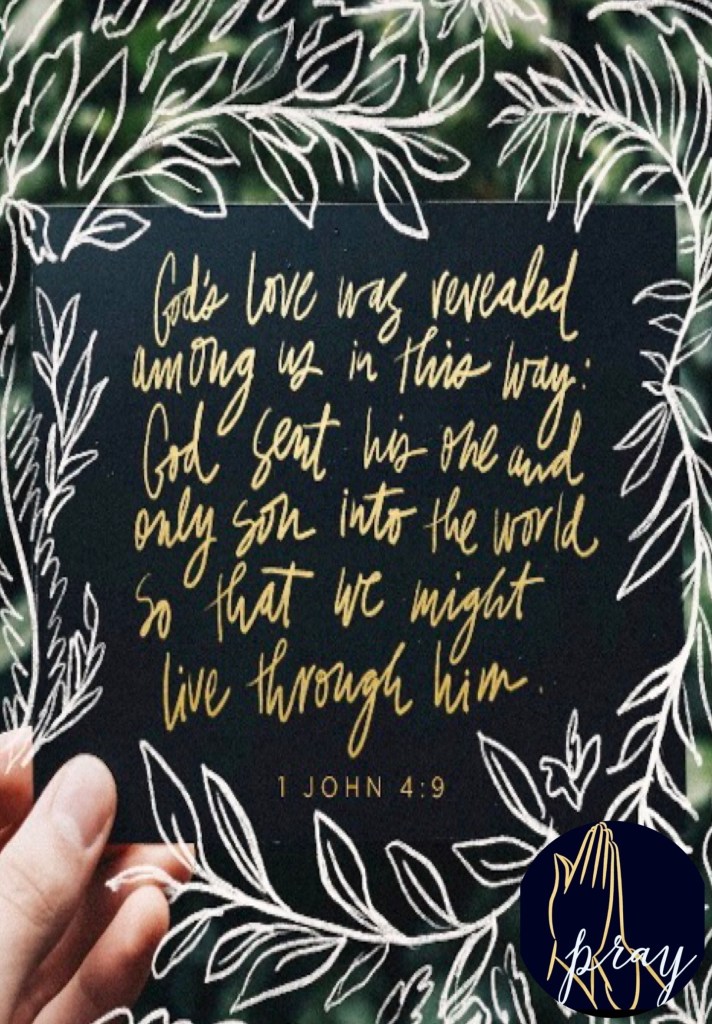 God's love was revealed
among us in this way:
God sent his one and
only son into the world
so that we might
live through him.
1 JOHN 4:9
pray